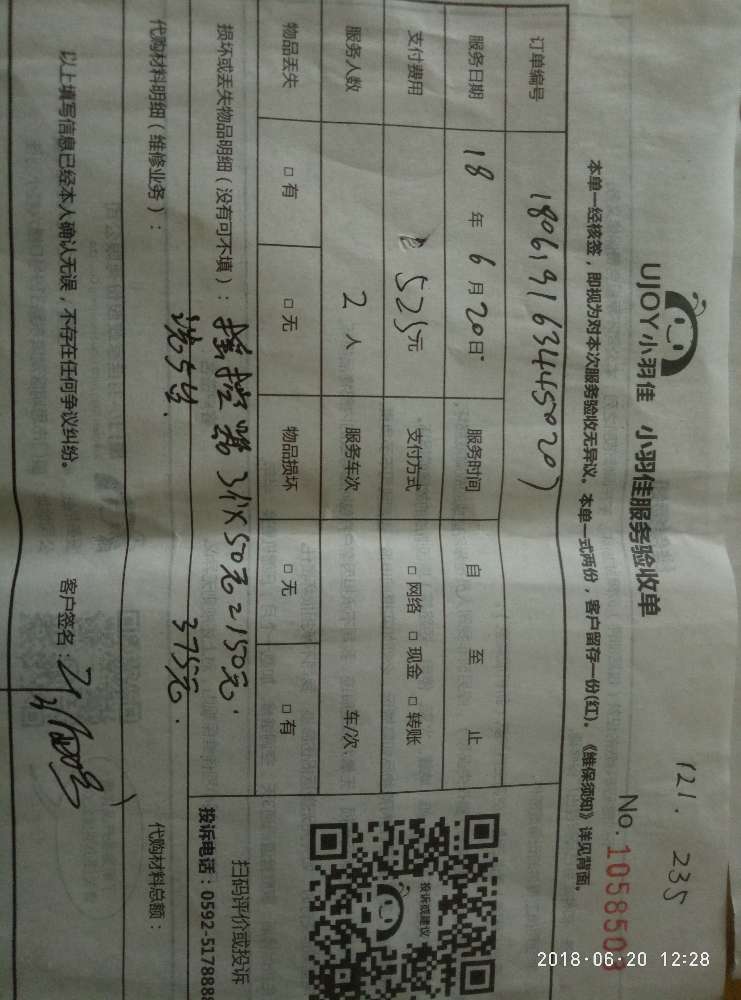 121. 235
UJOY小羽佳 小羽佳服务验收单
No. 1058503
本单一经核签，即视为对本次服务验收无异议。本单一式两份，客户留存一份(红)。《维保须知》详见背面。
订单编号
服务日期 18 年 6 月 20 日 服务时间 自 至 止
支付费用 525元 支付方式 □ 网络 □ 现金 □ 转账
服务人数 2 人 服务车次 车/次
物品丢失 □ 有 □ 无 物品损坏 □ 无 □ 有
损坏或丢失物品明细（没有可不填）： 摇控器 3个×50元=150元.
375元.
代购材料明细（维修业务）：
代购材料总额：
以上填写信息已经本人确认无误，不存在任何争议纠纷。
客户签名：
投诉或建议
扫码评价或投诉
投诉电话：0592-517888
2018-06-20 12:28